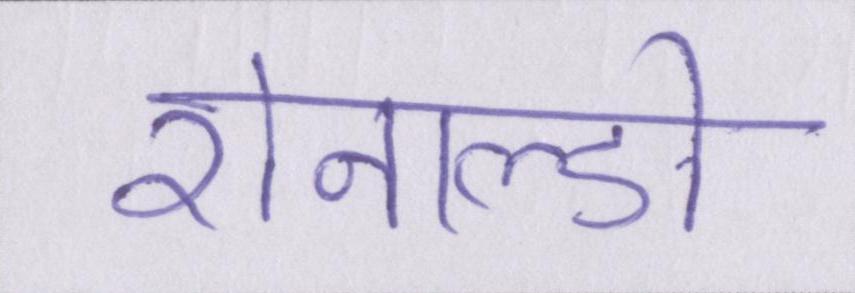 रोनाल्डो